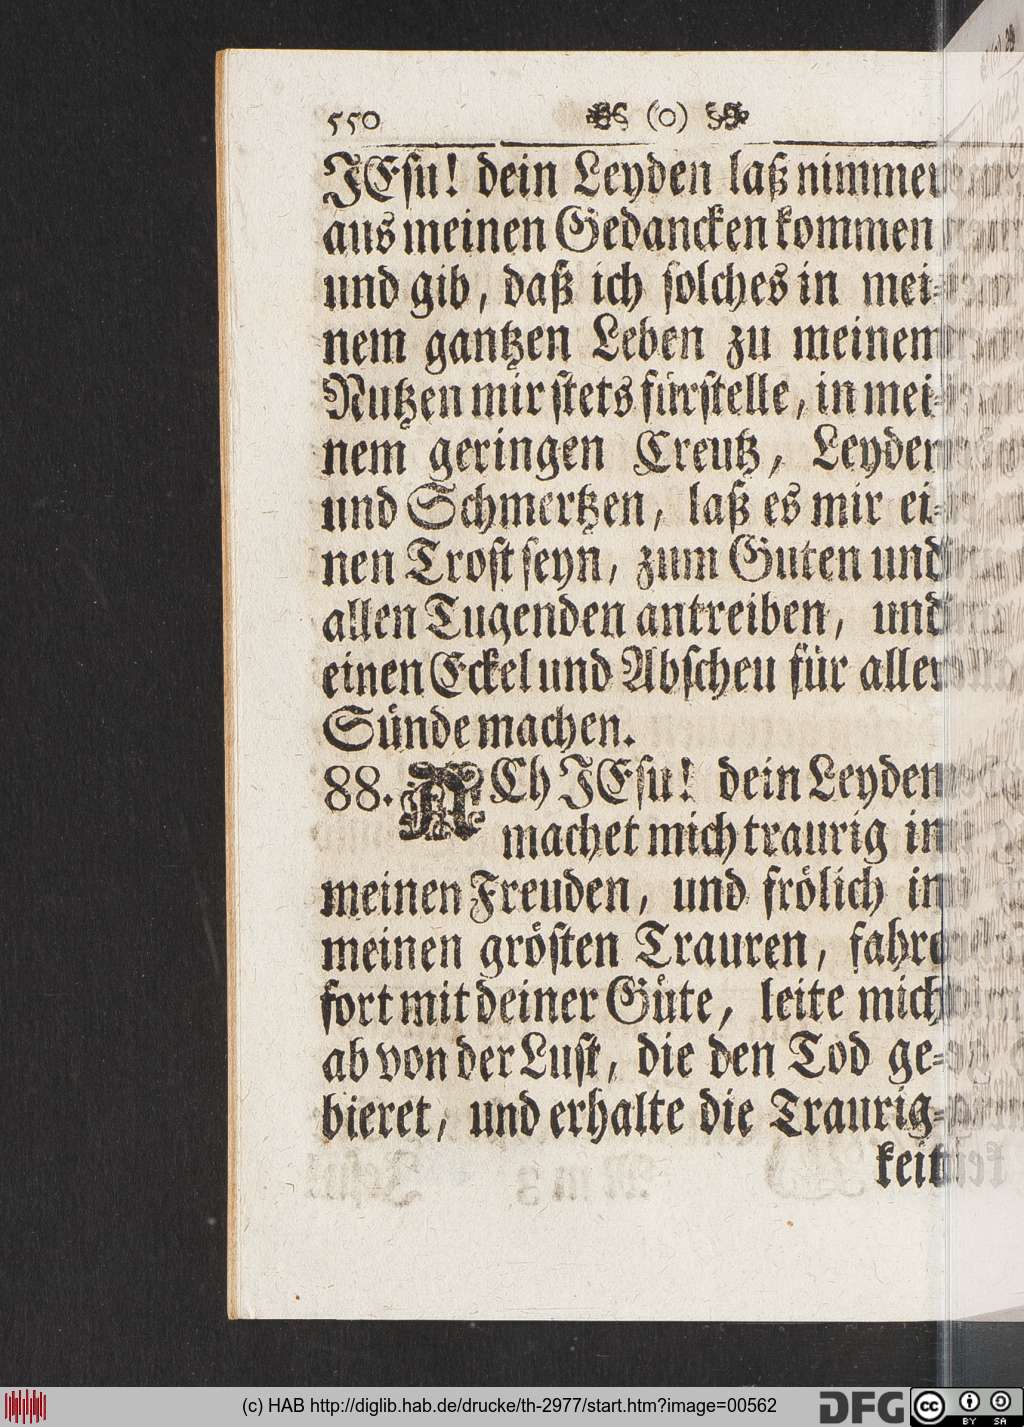 550 (o)
JEsu! dein Leyden laß nimmer
aus meinen Gedancken kommen
und gib, daß ich solches in mei-
nem gantzen Leben zu meinem
Nutzen mir stets fürstelle, in mei-
nem geringen Creutz, Leyden
und Schmertzen, laß es mir ei-
nen Trost seyn, zum Guten und
allen Tugenden antreiben, und
einen Eckel und Abscheu für aller
Sünde machen.
88. ACh JEsu! dein Leyden
machet mich traurig in
meinen Freuden, und frölich in
meinen grösten Trauren, fahre
fort mit deiner Güte, leite mich
ab von der Lust, die den Tod ge-
bieret, und erhalte die Traurig-
keit
(c) HAB http://diglib.hab.de/drucke/th-2977/start.htm?image=00562
DFG
cc BY SA